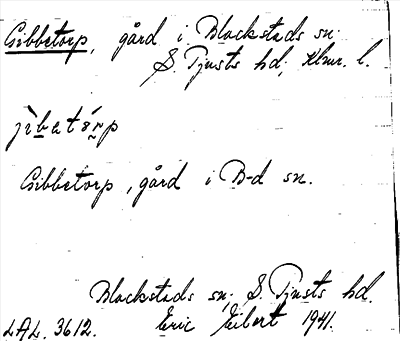 Gibbetorp, gård i Blackstads sn.
S. Tjusts hd; Klmr. l.
jìbetórp
Gibbetorp, gård i B-d sn.
Blackstads sn; S. Tjusts hd.
LAL. 3612. Eric Eibert 1941.